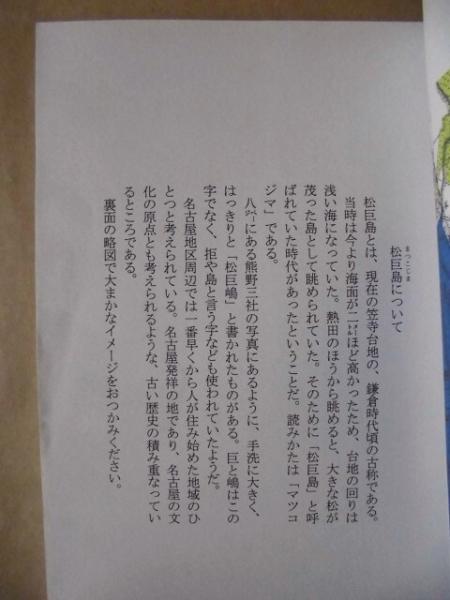 松巨島について
まつこじま
松巨島とは、現在の笠寺台地の、鎌倉時代頃の古称である。
当時は今より海面が二メートルほど高かったため、台地の回りは
浅い海になっていた。熱田のほうから眺めると、大きな松が
茂った島として眺められていた。そのために「松巨島」と呼
ばれていた時代があったということだ。読みかたは「マツコ
ジマ」である。
八ページにある熊野三社の写真にあるように、手洗に大きく、
はっきりと「松巨嶋」と書かれたものがある。巨と嶋はこの
字でなく、拒や島と言う字なども使われていたようだ。
名古屋地区周辺では一番早くから人が住み始めた地域のひ
とつと考えられている。名古屋発祥の地であり、名古屋の文
化の原点とも考えられるような、古い歴史の積み重なってい
るところである。
裏面の略図で大まかなイメージをおつかみください。